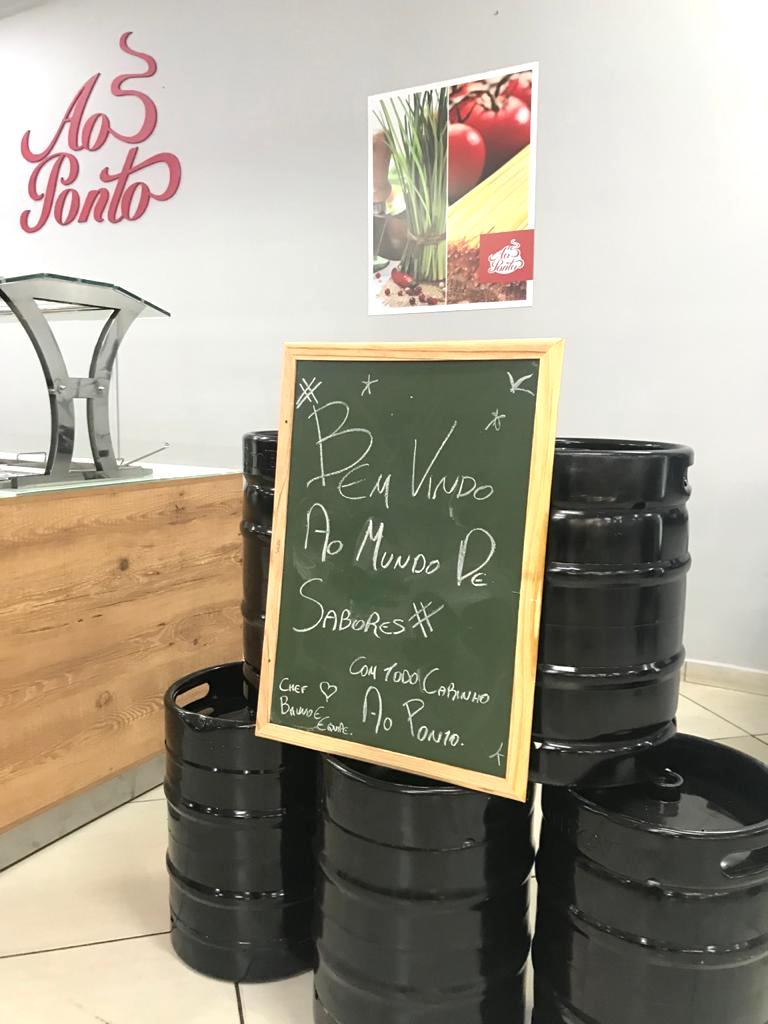 Ao
Ponto
Ao
Ponto
# BEM VINDO
AO MUNDO DE
SABORES #
COM TODO CARINHO
AO PONTO.
CHEF
EQUIPE.